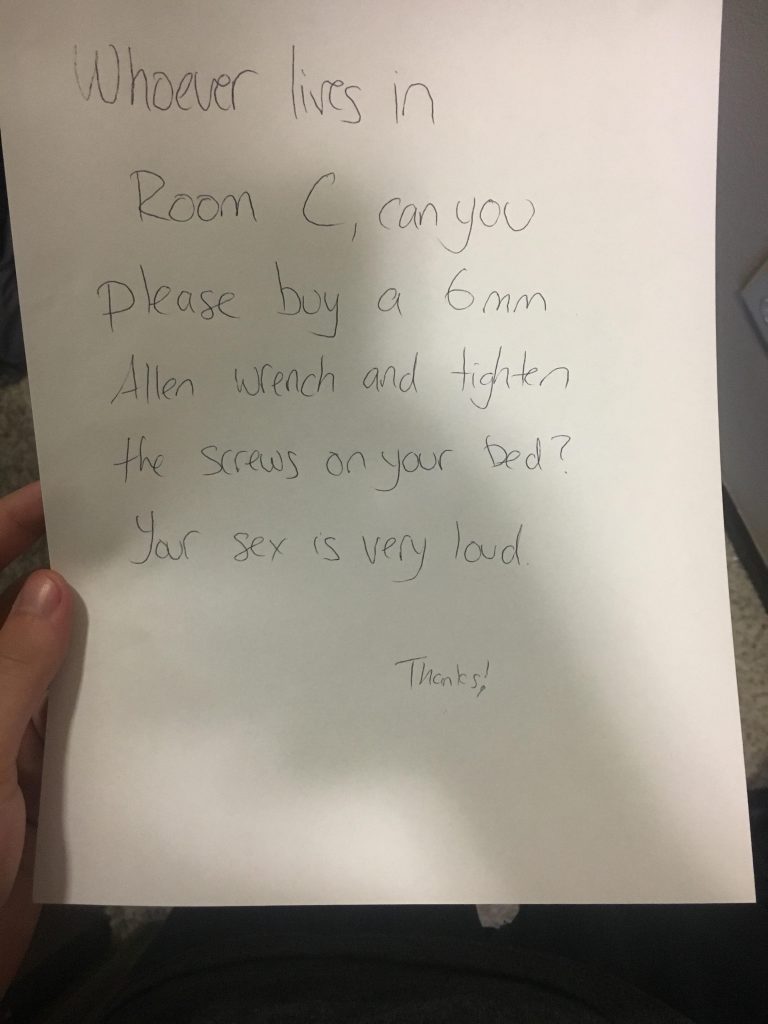 Whoever lives in
Room C, can you
please buy a 6mm
Allen wrench and tighten
the screws on your bed?
Your sex is very loud.
Thanks!